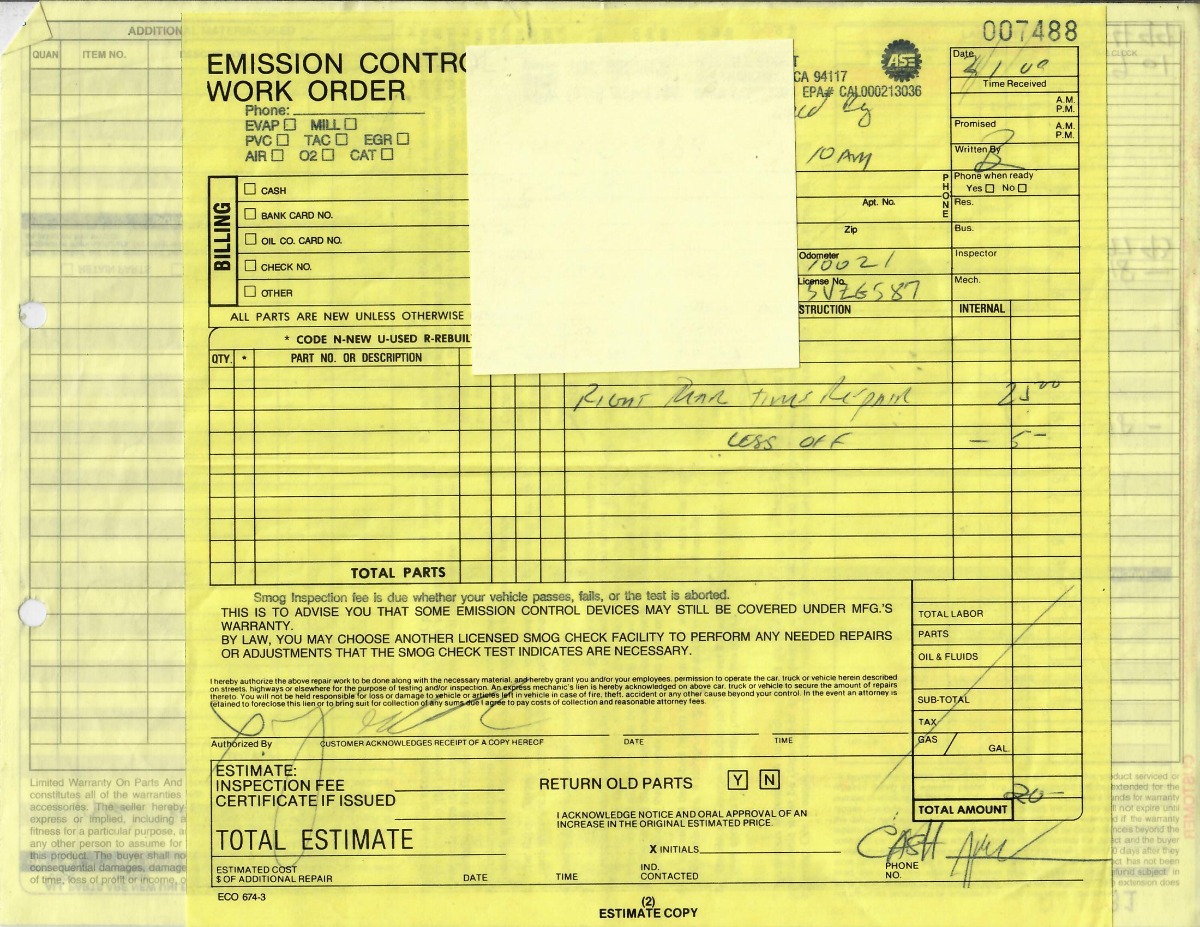 007488
EMISSION CONTRO
WORK ORDER
Phone:
EVAP MILL
PVC TAC EGR
AIR O2 CAT
CA 94117
EPA# CAL000213036
ASE
Date
Time Received
A.M.
P.M.
Promised
A.M.
P.M.
10 AM
Written By
B
PHONE
Phone when ready
Yes No
Res.
Bus.
Apt. No.
Zip
Inspector
Mech.
Odometer
70021
License No.
5VZG587
BILLING
CASH
BANK CARD NO.
OIL CO. CARD NO.
CHECK NO.
OTHER
ALL PARTS ARE NEW UNLESS OTHERWISE
* CODE N-NEW U-USED R-REBUIL
QTY. * PART NO. OR DESCRIPTION
STRUCTION INTERNAL
RIGHT REAR TIRES REPAIR 25 00
LESS OFF — 5 —
TOTAL PARTS
Smog Inspection fee is due whether your vehicle passes, fails, or the test is aborted.
THIS IS TO ADVISE YOU THAT SOME EMISSION CONTROL DEVICES MAY STILL BE COVERED UNDER MFG.'S
WARRANTY.
BY LAW, YOU MAY CHOOSE ANOTHER LICENSED SMOG CHECK FACILITY TO PERFORM ANY NEEDED REPAIRS
OR ADJUSTMENTS THAT THE SMOG CHECK TEST INDICATES ARE NECESSARY.
I hereby authorize the above repair work to be done along with the necessary material, and hereby grant you and/or your employees, permission to operate the car, truck or vehicle herein described
on streets, highways or elsewhere for the purpose of testing and/or inspection. An express mechanic's lien is hereby acknowledged on above car, truck or vehicle to secure the amount of repairs
thereto. You will not be held responsible for loss or damage to vehicle or articles left in vehicle in case of fire, theft, accident or any other cause beyond your control. In the event an attorney is
retained to foreclose this lien or to bring suit for collection of any sums due I agree to pay costs of collection and reasonable attorney fees.
Authorized By CUSTOMER ACKNOWLEDGES RECEIPT OF A COPY HEREOF DATE TIME
TOTAL LABOR
PARTS
OIL & FLUIDS
SUB-TOTAL
TAX
GAS / GAL.
20 —
TOTAL AMOUNT
ESTIMATE:
INSPECTION FEE
CERTIFICATE IF ISSUED
TOTAL ESTIMATE
RETURN OLD PARTS Y N
I ACKNOWLEDGE NOTICE AND ORAL APPROVAL OF AN
INCREASE IN THE ORIGINAL ESTIMATED PRICE.
X INITIALS
CASH
ESTIMATED COST
$ OF ADDITIONAL REPAIR DATE TIME
IND.
CONTACTED
PHONE
NO.
ECO 674-3
(2)
ESTIMATE COPY
QUAN ITEM NO.
Limited Warranty On Parts And
constitutes all of the warranties
accessories. The seller hereby
express or implied, including
fitness for a particular purpose, a
any other person to assume for
this product. The buyer shall no
consequential damages, damage
of time, loss of profit or income,